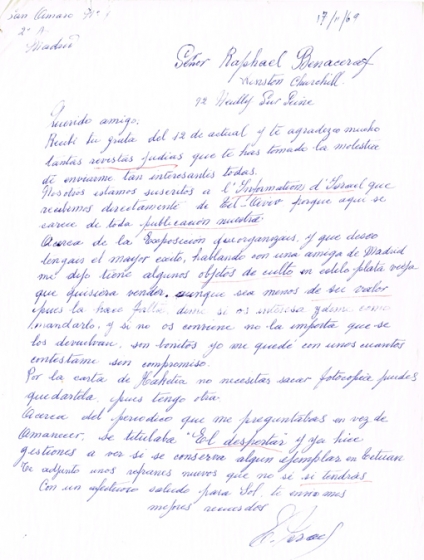 San Amaro Nº
2º A.
Madrid
17/ /69
Señor Raphael Benacerraf
Winston Churchill
92 Neuilly Sur Seine
Querido amigo:
Recibi tu grata del 12 de actual y te agradezco mucho
tantas revistas judias que te has tomado la molestia
de enviarme tan interesantes todas.
Nosotros estamos suscritos a l'Information d'Israel que
recibimos directamente de Tel-Aviv porque aqui se
carece de toda publicación nuestra
Acerca de la Exposición que organizais, y que deseo
tengais el mayor exito, hablando con una amiga de Madrid
me dijo tiene algunos objetos de culto en estilo plata vieja
que quisiera vender, aunque sea menos de su valor
pues la hace falta, dime si os interesa y dime como
mandarlo, y si no os conviene no la importa que se
los devuelvan, son bonitos yo me quedé con unos cuantos
contestame sin compromiso.
Por la carta de Haketia no necesitas sacar fotocopia puedes
quedartela, pues tengo otra
Acerca del periodico que me preguntabas en vez de
Amanecer, se titulaba "El despertar" y ya hice
gestiones a ver si se conserva algun ejemplar en Tetuan
Te adjunto unos refranes nuevos que no sé si tendras
Con un afectuoso saludo para Sol, te enviamos
mejores recuerdos